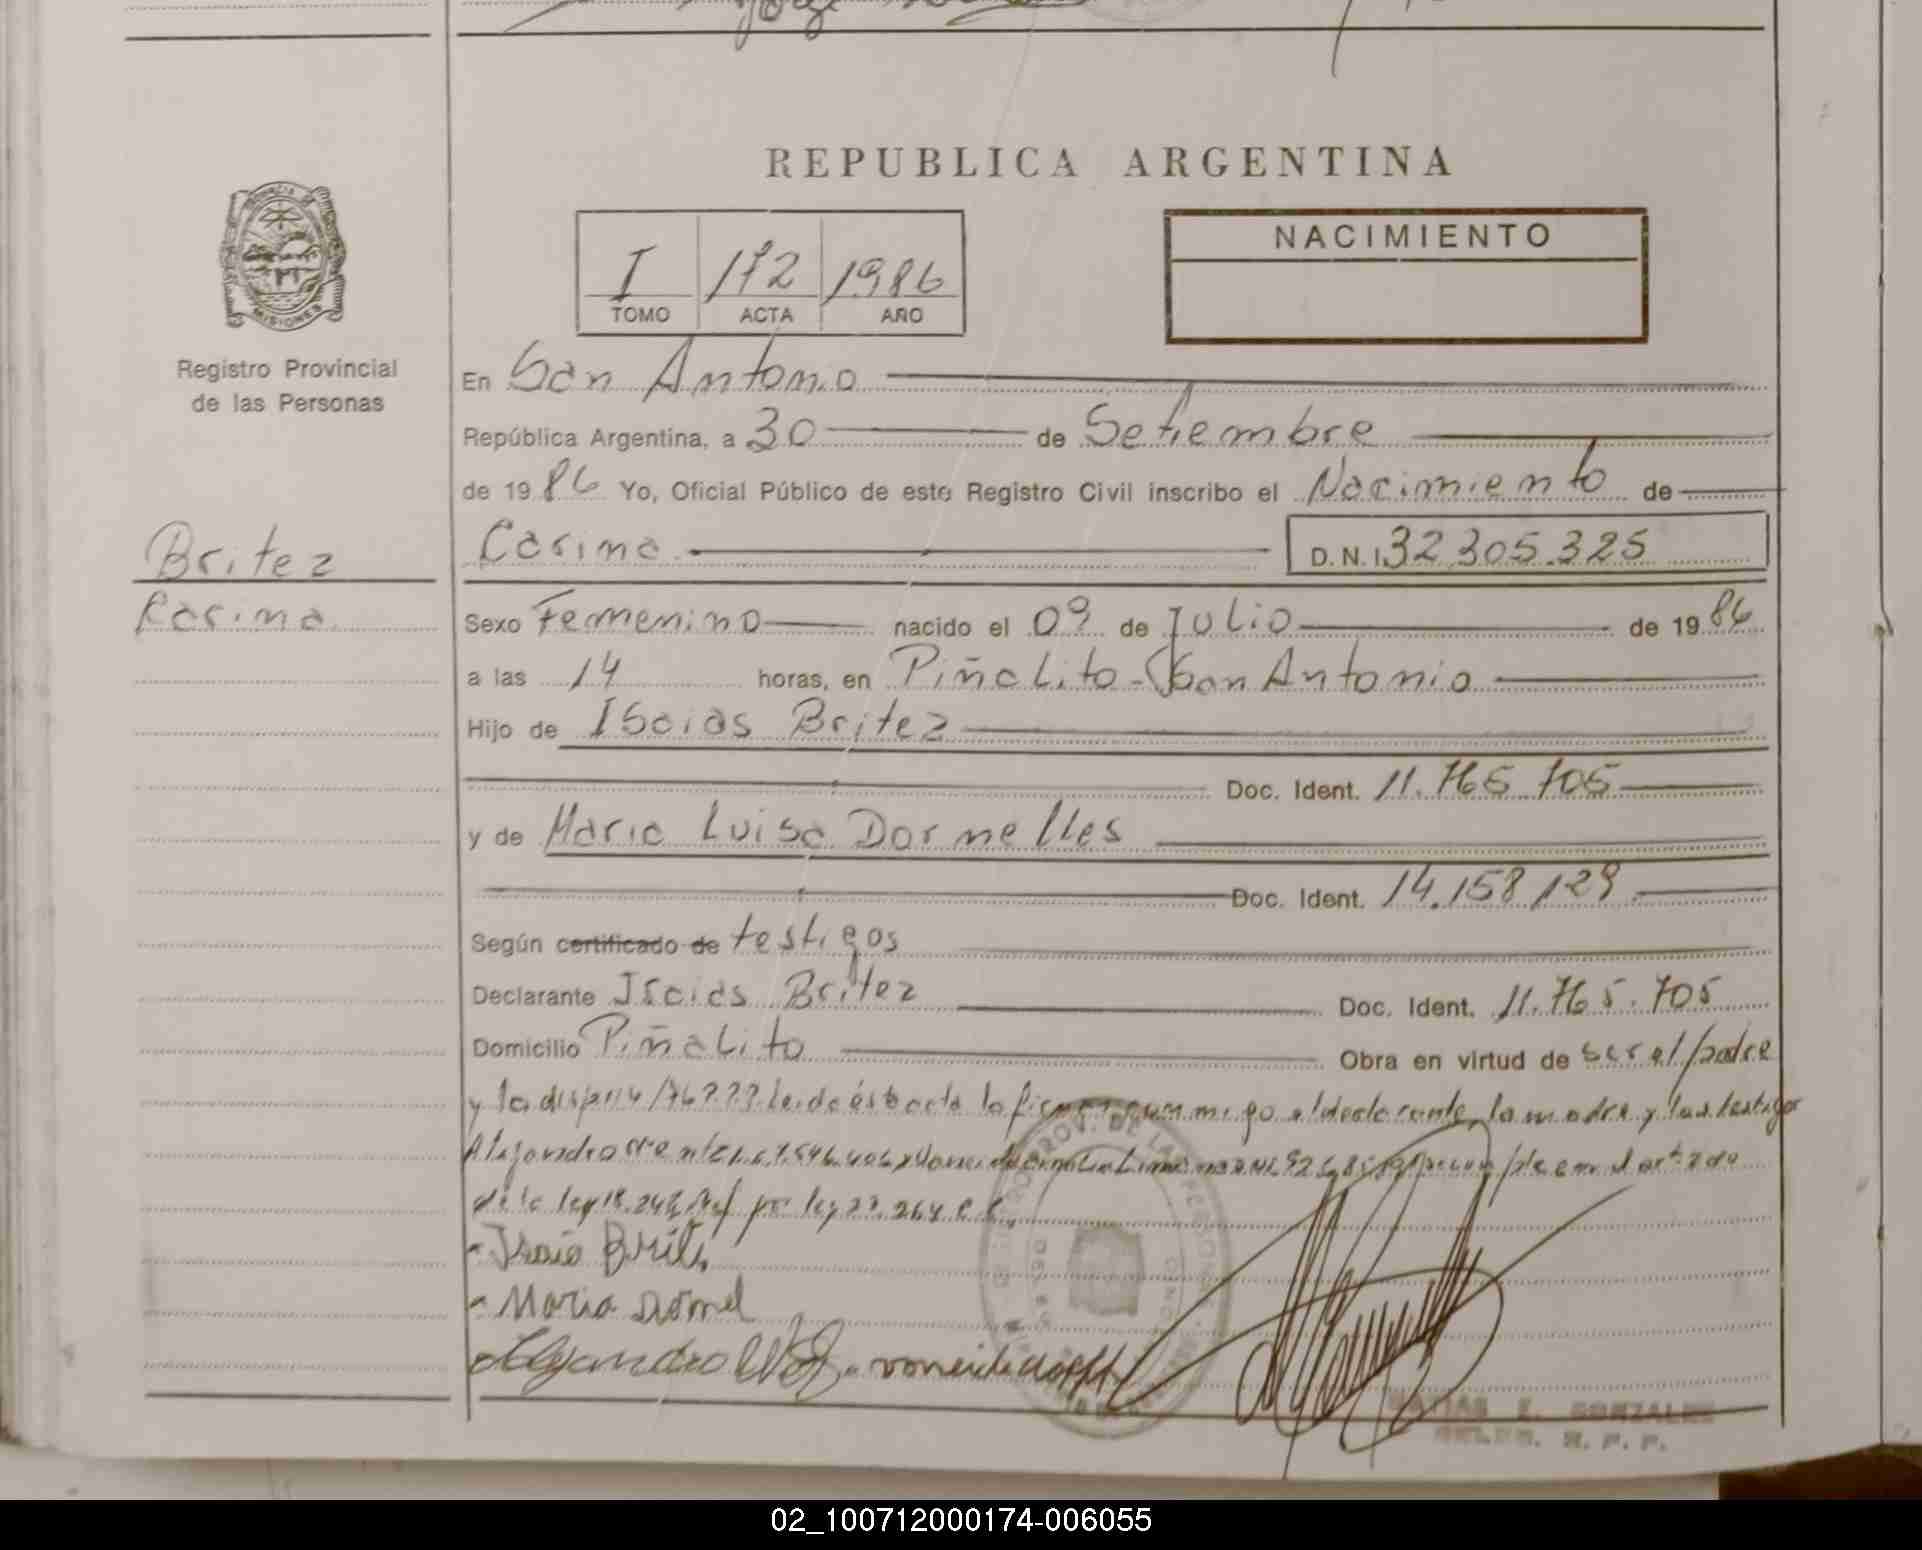 REPUBLICA ARGENTINA
PROVINCIA DE
MISIONES
Registro Provincial
de las Personas
I 172 1986
TOMO ACTA AÑO
NACIMIENTO
En San Antonio
República Argentina, a 30 de Setiembre
de 1986 Yo, Oficial Público de este Registro Civil inscribo el Nacimiento de
Britez
Carina
Carina D.N.I. 32.305.325
Sexo Femenino nacido el 09 de Julio de 1986
a las 14 horas, en Piñalito - San Antonio
Hijo de Isaias Britez
Doc. Ident. 11.765.705
y de Maria Luisa Dornelles
Doc. Ident. 14.158.129
Según certificado de testigos
Declarante Isaias Britez Doc. Ident. 11.765.705
Domicilio Piñalito Obra en virtud de ser el padre
y la leida ésta acta la firman conmigo el declarante, la madre y los testigos
Alejandro
de la ley 18.248 por ley 23.264
Maria Dornel
Alejandro
GONZALEZ
R. P. P.
02_100712000174-006055